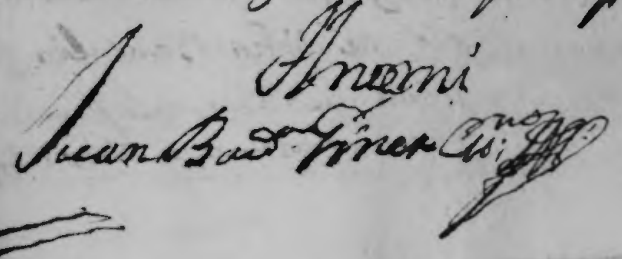 Ante mi
Juan Baut.ta Giner Es.no